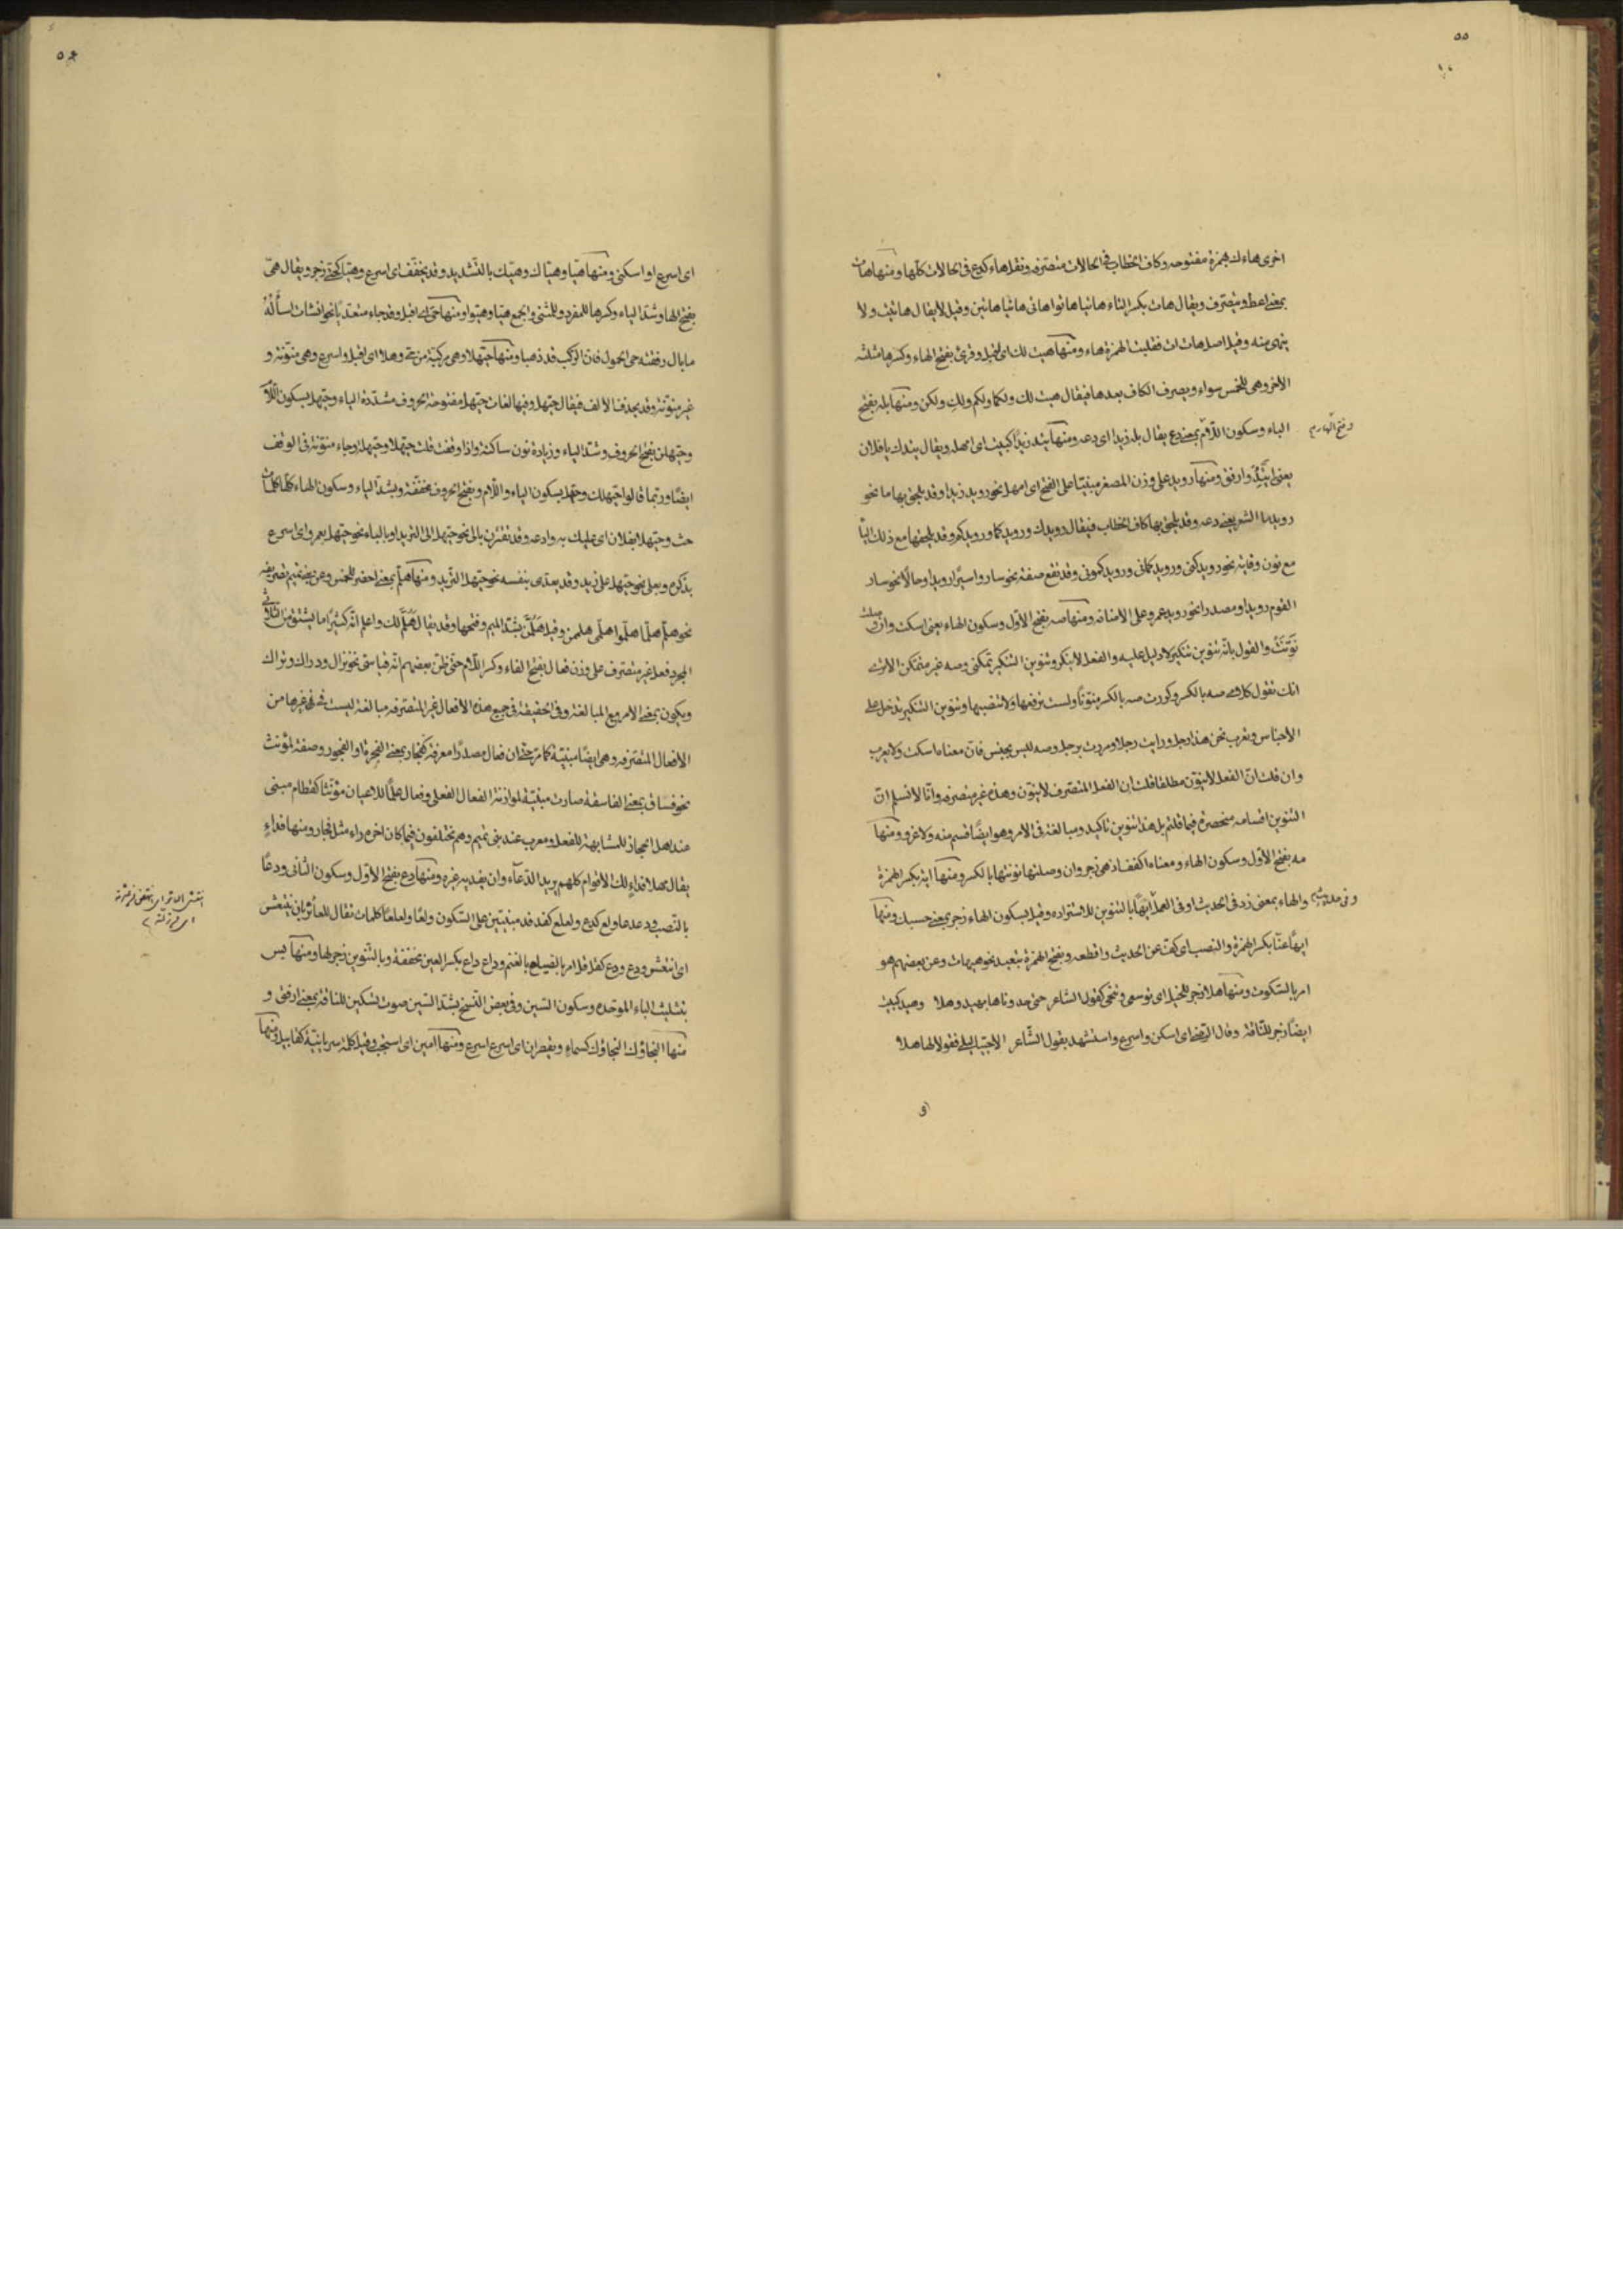 ٥٥
اخرى هاءك بهمزة مفتوحه وكاف الخطاب فى الحالات متصرفه ونقل هاء كدع فى الحالات كلها ومنها هات
بمعنى اعط ويتصرف ويقال هات بكسر التاء هاتيا هاتوا هاتى هاتيا هاتين وقيل لايقال هاتيت ولا
ينهى منه وقيل اصل هات ات فقلبت الهمزة هاء ومنها هيت لك اى اقبل وقرئ بفتح الهاء وكسرها مثلثه
الاخر وهى للخمس سواء ويصرف الكاف بعدها فيقال هيت لك ولكما ولكم ولكِ ولكن ومنها بله بفتح
الباء وسكون اللام بمعنى دع يقال بله زيدا اى دعه ومنها تيد زيدًا كبيت اى امهله ويقال تيدك يافلان
بمعنى اتئد وارفق ومنها رويد على وزن المصغر مبنيّا على الفتح اى امهل نحو رويد زيدا وقد يلحق بها ما نحو
رويد ما الشعر يعنى دعه وقد يلحق بها كاف الخطاب فيقال رويدك ورويدكما ورويدكم وقد يلحقها مع ذلك اليا
مع نون وقاية نحو رويدكنى ورويدكمانى ورويدكمونى وقد تقع صفة نحو ساروا سيرًا رويدا وحالًا نحو سار
القوم رويدا ومصدرا نحو رويد عمرو على الاضافه ومنها صه بفتح الاول وسكون الهاء بمعنى اسكت وان وصلت
نَوّنْتَ والقول بانّه تنوين تنكير لا دليل عليه والفعل لاينكر وتنوين التنكير تمكنى وصه غير متمكن الاترى
انك تقول كلا صه بالكسر وكررت صه بالكسر منوّنًا ولست ترفعها ولا تنصبها وتنوين التنكير تدخل على
الاجناس ويعرب نحن هذا رجل ورايت رجلا ومررت برجل وصه ليس بجنس فان معناه اسكت ولايعرب
وان قلت انّ الفعل لاينوّن مطلقا قلت ان الفعل المتصرف لاينوّن وهذه غير متصرفه وانّا لانسلم انّ
التنوين اقسامه منحصرة فيما قلتم بل هذا تنوين تاكيد ومبالغة فى الامر وهو ايضًا قسم منه ولا غرو ومنها
مه بفتح الاول وسكون الهاء ومعناه اكفف اذ هى زجر وان وصلتها نونتها بالكسر ومنها ايه بكسر الهمزة
والهاء بمعنى زد فى الحديث او فى العمل ايهًا بالتنوين للاستزاده وقيل بسكون الهاء زجر بمعنى حسبك ومنها
ايهًا عنّا بكسر الهمزة والنصب اى كفّ عن الحديث واقطعه وبفتح الهمزة تبعيد نحو هيهات وعن بعضهم هو
امر بالسكوت ومنها هلا زجر للخيل اى توسعى وتنحى كقول الشاعر حتى حدوناها بهيد وهلا وهيد كبيت
ايضًا زجر للناقة وقال الرضى اى اسكن واسرع واستشهد بقول الشاعر الاحييا ليلى فقولا لها هلا
اى
٥٤
اى اسرع او اسكنى ومنها هيّا وهيّاك وهيّك بالتشديد وقد يخفّف اى اسرع وهيّا كحتى زجر ويقال هىّ
بفتح الها وشد الياء وكسرها للمفرد وللمثنى والجمع هيا وهيوا ومنها حىّ اى اقبل وقد جاء متعديًا نحو انشات اسألُهُ
مابال رفقته حى الحمول فان الركب قد ذهبا ومنها حيّهلا وهى مركبة من حى وهلا اى اقبل واسرع وهى منوّنة و
غير منوّنة وقد يحذف الالف فيقال حيّهل وفيها لغات حيّهل مفتوحة الحروف مشدّدة الياء وحيّهل بسكون اللّام
وحيّهلن بفتح الحروف وشد الياء وزيادة نون ساكنة واذا وقفت قلت حيّهلا وحيّهله وجاء منوّنة فى الوقف
ايضًا وربّما قالوا حيّهلك وحيهل بسكون الياء واللام وبفتح الحروف مخففة وبشدّ الياء وسكون الهاء كلّها كلمات
حث وحيّهلا بفلان اى عليك به وادعه وقد تقترن بالى نحو حيّهل الى الثريد او بالباء نحو حيّهل بعمر و اى اسرع
بذكره وبعلى نحو حيّهل على زيد وقد يعتدى بنفسه نحو حيّهل الثريد ومنها هلمّ بمعنى احضر للخمس وعن بنى تميم تصريفه
نحو هلمّ هلمّا هلمّوا هلمّى هلممن وقيل هَلُمَّنّ بشدّ الميم وفتحها وقد يقال هَلُمَّ لك واعلم انّه كثيرًا ما يشتق من الثلاثى
المجرد فعل غير متصرف على وزن فعال بفتح الفاء وكسر اللام حتى ظنّ بعضهم انّه قياسى نحو نزال ودراك وتراك
ويكون بمعنى الامر مع المبالغة وفى الحقيقة فى جميع هذه الافعال غير المتصرفه مبالغة ليست فى غيرها من
الافعال المتصرفه وهى ايضًا مبنيّة كما مر حتى ان فعال مصدرًا معرفة كفجار بمعنى الفجرة او الفجور وصفة لمؤنث
نحو فساق بمعنى الفاسقة صارت مبنيّة لموازنة الفعال الفعلى وفعال علمًا للاعيان مؤنّثا كقطام مبنى
عند اهل الحجاز للمشابهة للفعل ومعرب عند بنى تميم وهم يختلفون فيما كان اخره راء مثل فجار ومنها فداءٍ
يقال مهلا فداءٍ لك الاقوام كلهم يريد الدّعاء وان يفديه غيره ومنها دع بفتح الاوّل وسكون الثانى ودعًا
بالنصب ودعدعا ولع كدع ولعلع كفدفد مبنيتين على السّكون ولعًا ولعلعًا كلمات تقال للعاثر بان ينتعش
اى انتعش ودع ودع كقل قل امر بالصياح بالغنم وداع داع بكسر العين مخففة وبالتنوين زجر لها ومنها بس
بتثليث الباء الموحده وسكون السّين وفى بعض النسخ بشد السّين صوت لتسكين للناقة بمعنى ارفقى و
منها النجاؤك النجاؤك كسماءٍ ويقصران اى اسرع اسرع ومنها آمين اى استجب وقيل كلمة سريانيّة كقابيل ومنها